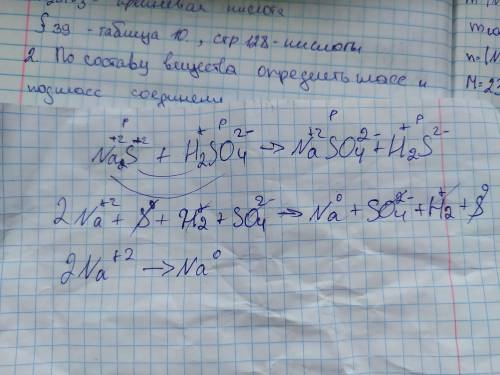 кислота
§ 39 - таблица 10., стр 128 - кислоты
2. По составу вещества определить класс и
подкласс соединени
m=(N
n=(N
M=23
р р р р
Na₂⁺²S⁺² + H₂⁺SO₄²⁻ → Na⁺²SO₄²⁻ + H₂⁺S²⁻
2Na⁺² + S⁰ + H₂⁺ + SO₄²⁻ → Na⁰ + SO₄²⁻ + H₂⁺ + S⁰
2Na⁺² → Na⁰